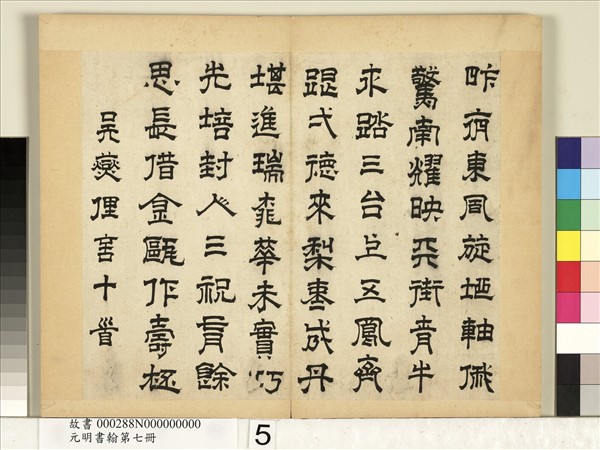 昨宵東周旋軸俄
驚南耀映天街青牛
踏三台上五鳳齊
跟弌德來梨棗成丹
堪進瑞桃華未實巧
先培封人三祝有餘
思長借金甌作壽杯
吳爕俚言十首
故書 000288N000000000
元明書翰第七冊
5